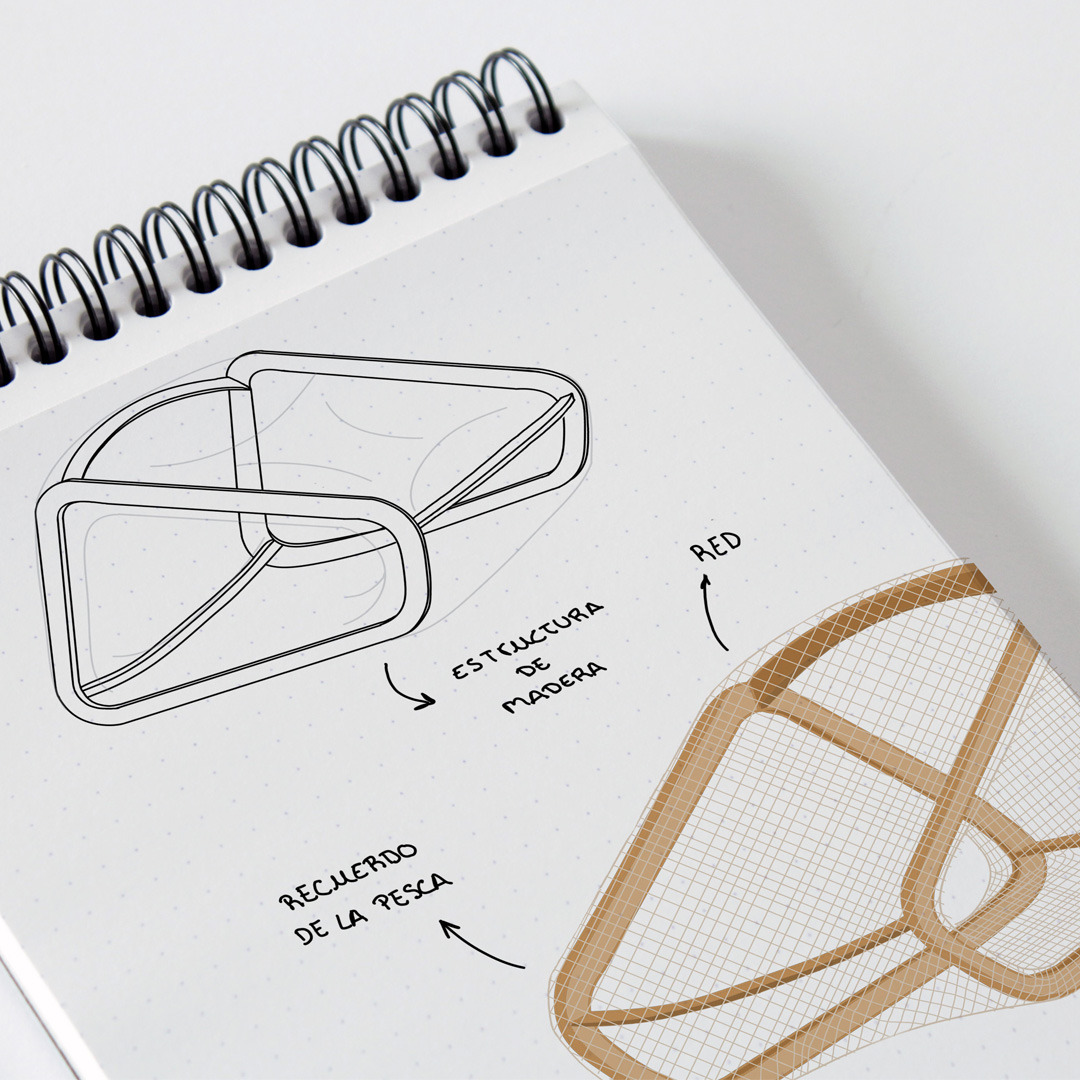 RED
ESTRUCTURA
DE
MADERA
RECUERDO
DE LA PESCA